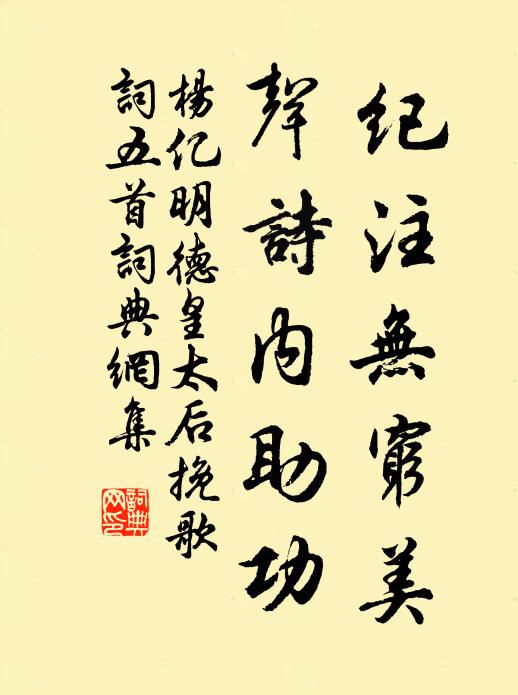 紀注無窮美
聲詩內助功
楊亿明德皇太后挽歌
詞五首詞典網集
詞典网印